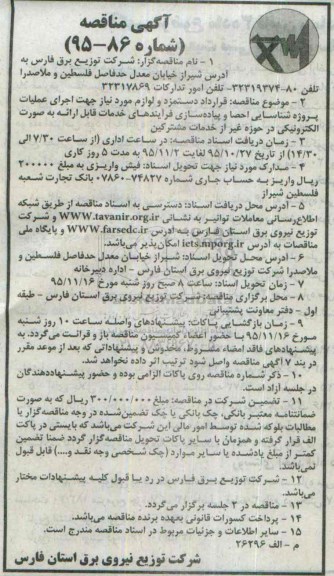 آگهی مناقصه
(شماره ۸۶-۹۵)
۱ - نام مناقصه‌گزار: شرکت توزیع برق فارس به
آدرس شیراز خیابان معدل حدفاصل فلسطین و ملاصدرا
تلفن ۸۰-۳۲۳۱۹۳۷۴ تلفن امور تدارکات ۳۲۳۱۷۸۶۹
۲ - موضوع مناقصه: قرارداد دستمزد و لوازم مورد نیاز جهت اجرای عملیات
پروژه شناسایی احصا و پیاده‌سازی فرآیندهای خدمات قابل ارائه به صورت
الکترونیکی در حوزه غیر از خدمات مشترکین
۳ - زمان دریافت اسناد مناقصه: در ساعت اداری (از ساعت ۷/۳۰ الی
۱۴/۳۰) از تاریخ ۹۵/۱۰/۲۷ لغایت ۹۵/۱۱/۲ به مدت ۵ روز کاری
۴ - مدارک مورد نیاز جهت تحویل اسناد: فیش واریزی به مبلغ ۲۰۰۰۰۰
ریال واریز به حساب جاری شماره ۰۷۸۶۰۰۷۴۸۲۷ بانک تجارت شعبه
فلسطین شیراز
۵ - آدرس محل دریافت اسناد: دسترسی به اسناد مناقصه از طریق شبکه
اطلاع‌رسانی معاملات توانیر به نشانی WWW.tavanir.org.ir و شرکت
توزیع نیروی برق استان فارس به آدرس WWW.farsedc.ir و پایگاه ملی
مناقصات به آدرس iets.mporg.ir امکان‌پذیر می‌باشد.
۶ - آدرس محل تحویل اسناد: شیراز خیابان معدل حدفاصل فلسطین و
ملاصدرا شرکت توزیع نیروی برق استان فارس - اداره دبیرخانه
۷ - زمان تحویل اسناد: ساعت ۸ صبح روز شنبه مورخ ۹۵/۱۱/۱۶
۸ - محل برگزاری مناقصه: شرکت توزیع نیروی برق استان فارس - طبقه
اول - دفتر معاونت پشتیبانی
۹ - زمان بازگشایی پاکات: پیشنهادهای واصله ساعت ۱۰ روز شنبه
مورخ ۹۵/۱۱/۱۶ با حضور اعضاء کمیسیون مناقصه باز و قرائت می‌گردد. به
پیشنهادهای فاقد امضاء مشروط، مخدوش و پیشنهاداتی که بعد از موعد مقرر
در بند ۷ آگهی مناقصه واصل شود ترتیب اثر داده نخواهد شد.
۱۰ - ذکر شماره مناقصه روی پاکات الزامی بوده و حضور پیشنهاددهندگان
در جلسه آزاد است.
۱۱ - تضمین شرکت در مناقصه: مبلغ ۳۰۰/۰۰۰/۰۰۰ ریال که به صورت
ضمانتنامه معتبر بانکی، چک بانکی یا چک تضمین‌شده در وجه مناقصه‌گزار یا
مطالبات بلوکه شده توسط امور مالی این شرکت می‌باشد که بایستی در پاکت
الف قرار گرفته و همزمان با سایر پاکات تحویل مناقصه‌گزار گردد ضمنا تضمین
کمتر از مبلغ یادشده یا سایر موارد (چک شخصی وجه نقد و....) قابل قبول
نمی‌باشد.
۱۲ - شرکت توزیع برق فارس در رد یا قبول کلیه پیشنهادات مختار
می‌باشد.
۱۳ - مناقصه در ۲ جلسه برگزار می‌گردد.
۱۴ - پرداخت کسورات قانونی بعهده برنده مناقصه می‌باشد.
۱۵ - سایر اطلاعات و جزئیات مربوط در اسناد مناقصه مندرج است.
م - الف ۲۶۲۹۶
شرکت توزیع نیروی برق استان فارس